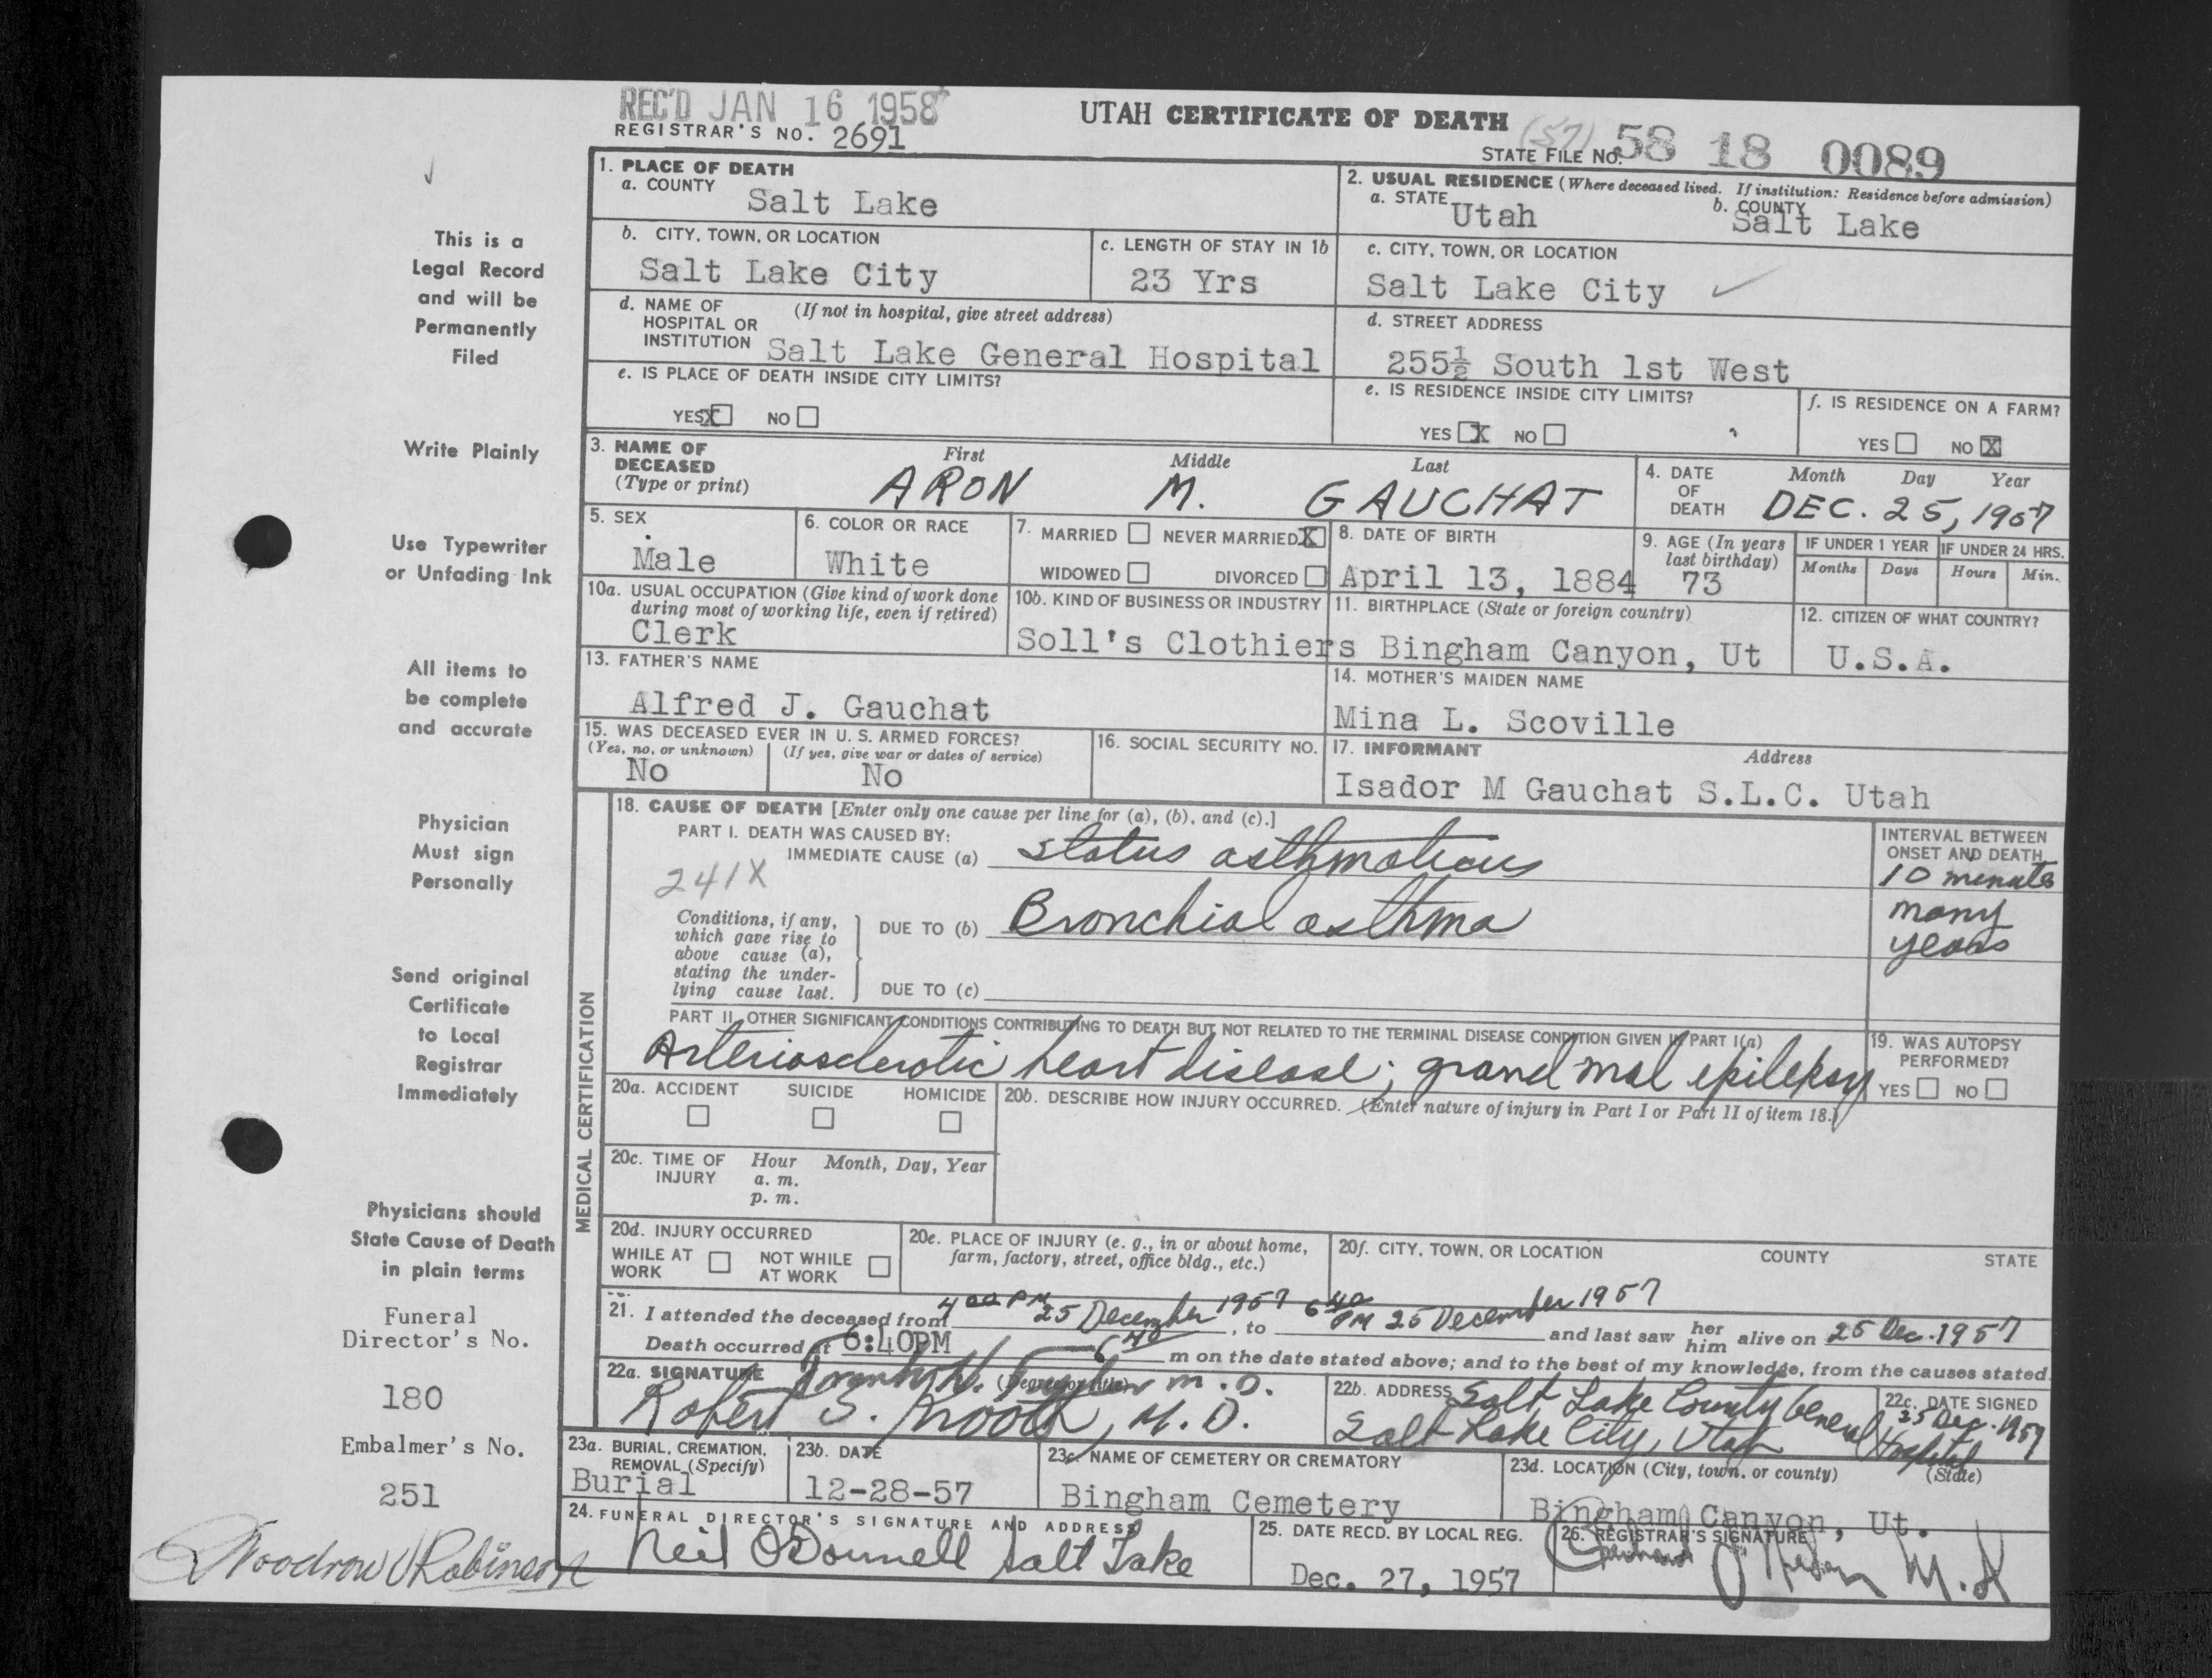 REC'D JAN 16 1958
UTAH CERTIFICATE OF DEATH
REGISTRAR'S NO. 2691
(57)
STATE FILE NO. 58 18 0089
This is a
Legal Record
and will be
Permanently
Filed
Write Plainly
Use Typewriter
or Unfading Ink
All items to
be complete
and accurate
Physician
Must sign
Personally
Send original
Certificate
to Local
Registrar
Immediately
Physicians should
State Cause of Death
in plain terms
Funeral
Director's No.
180
Embalmer's No.
251
Woodrow Robinson
1. PLACE OF DEATH
a. COUNTY Salt Lake
2. USUAL RESIDENCE (Where deceased lived. If institution: Residence before admission)
a. STATE Utah b. COUNTY Salt Lake
b. CITY, TOWN, OR LOCATION Salt Lake City
c. LENGTH OF STAY IN 1b 23 Yrs
c. CITY, TOWN, OR LOCATION Salt Lake City
d. NAME OF HOSPITAL OR INSTITUTION (If not in hospital, give street address) Salt Lake General Hospital
d. STREET ADDRESS 255½ South 1st West
e. IS PLACE OF DEATH INSIDE CITY LIMITS?
YES X NO
e. IS RESIDENCE INSIDE CITY LIMITS?
YES X NO
f. IS RESIDENCE ON A FARM?
YES NO X
3. NAME OF DECEASED (Type or print)
First Middle Last
ARON M. GAUCHAT
4. DATE OF DEATH Month Day Year
DEC. 25, 1957
5. SEX Male
6. COLOR OR RACE White
7. MARRIED NEVER MARRIED X
WIDOWED DIVORCED
8. DATE OF BIRTH April 13, 1884
9. AGE (In years last birthday) 73
IF UNDER 1 YEAR Months Days
IF UNDER 24 HRS. Hours Min.
10a. USUAL OCCUPATION (Give kind of work done during most of working life, even if retired) Clerk
10b. KIND OF BUSINESS OR INDUSTRY Soll's Clothiers
11. BIRTHPLACE (State or foreign country) Bingham Canyon, Ut
12. CITIZEN OF WHAT COUNTRY? U.S.A.
13. FATHER'S NAME Alfred J. Gauchat
14. MOTHER'S MAIDEN NAME Mina L. Scoville
15. WAS DECEASED EVER IN U. S. ARMED FORCES?
(Yes, no, or unknown) No (If yes, give war or dates of service) No
16. SOCIAL SECURITY NO.
17. INFORMANT Address
Isador M Gauchat S.L.C. Utah
MEDICAL CERTIFICATION
18. CAUSE OF DEATH [Enter only one cause per line for (a), (b), and (c).]
PART I. DEATH WAS CAUSED BY:
IMMEDIATE CAUSE (a) status asthmaticus
241X
INTERVAL BETWEEN ONSET AND DEATH
10 minutes
Conditions, if any, which gave rise to above cause (a), stating the underlying cause last.
DUE TO (b) Bronchial asthma
many years
DUE TO (c)
PART II. OTHER SIGNIFICANT CONDITIONS CONTRIBUTING TO DEATH BUT NOT RELATED TO THE TERMINAL DISEASE CONDITION GIVEN IN PART I(a)
Arteriosclerotic heart disease; grand mal epilepsy
19. WAS AUTOPSY PERFORMED?
YES NO
20a. ACCIDENT SUICIDE HOMICIDE
20b. DESCRIBE HOW INJURY OCCURRED. (Enter nature of injury in Part I or Part II of item 18.)
20c. TIME OF INJURY Hour Month, Day, Year
a. m.
p. m.
20d. INJURY OCCURRED
WHILE AT WORK NOT WHILE AT WORK
20e. PLACE OF INJURY (e. g., in or about home, farm, factory, street, office bldg., etc.)
20f. CITY, TOWN, OR LOCATION COUNTY STATE
21. I attended the deceased from 4 00 PM 25 December 1957, to 6 40 PM 25 December 1957 and last saw her him alive on 25 Dec. 1957
Death occurred at 6:40PM 6 40 m on the date stated above; and to the best of my knowledge, from the causes stated.
22a. SIGNATURE (Degree or title) M.D.
Robert S. M.D.
22b. ADDRESS Salt Lake County General Hospital
Salt Lake City, Utah
22c. DATE SIGNED 25 Dec. 1957
23a. BURIAL, CREMATION, REMOVAL (Specify) Burial
23b. DATE 12-28-57
23c. NAME OF CEMETERY OR CREMATORY Bingham Cemetery
23d. LOCATION (City, town, or county) (State)
Bingham Canyon, Ut.
24. FUNERAL DIRECTOR'S SIGNATURE AND ADDRESS
Neil O'Donnell Salt Lake
25. DATE RECD. BY LOCAL REG. Dec. 27, 1957
26. REGISTRAR'S SIGNATURE